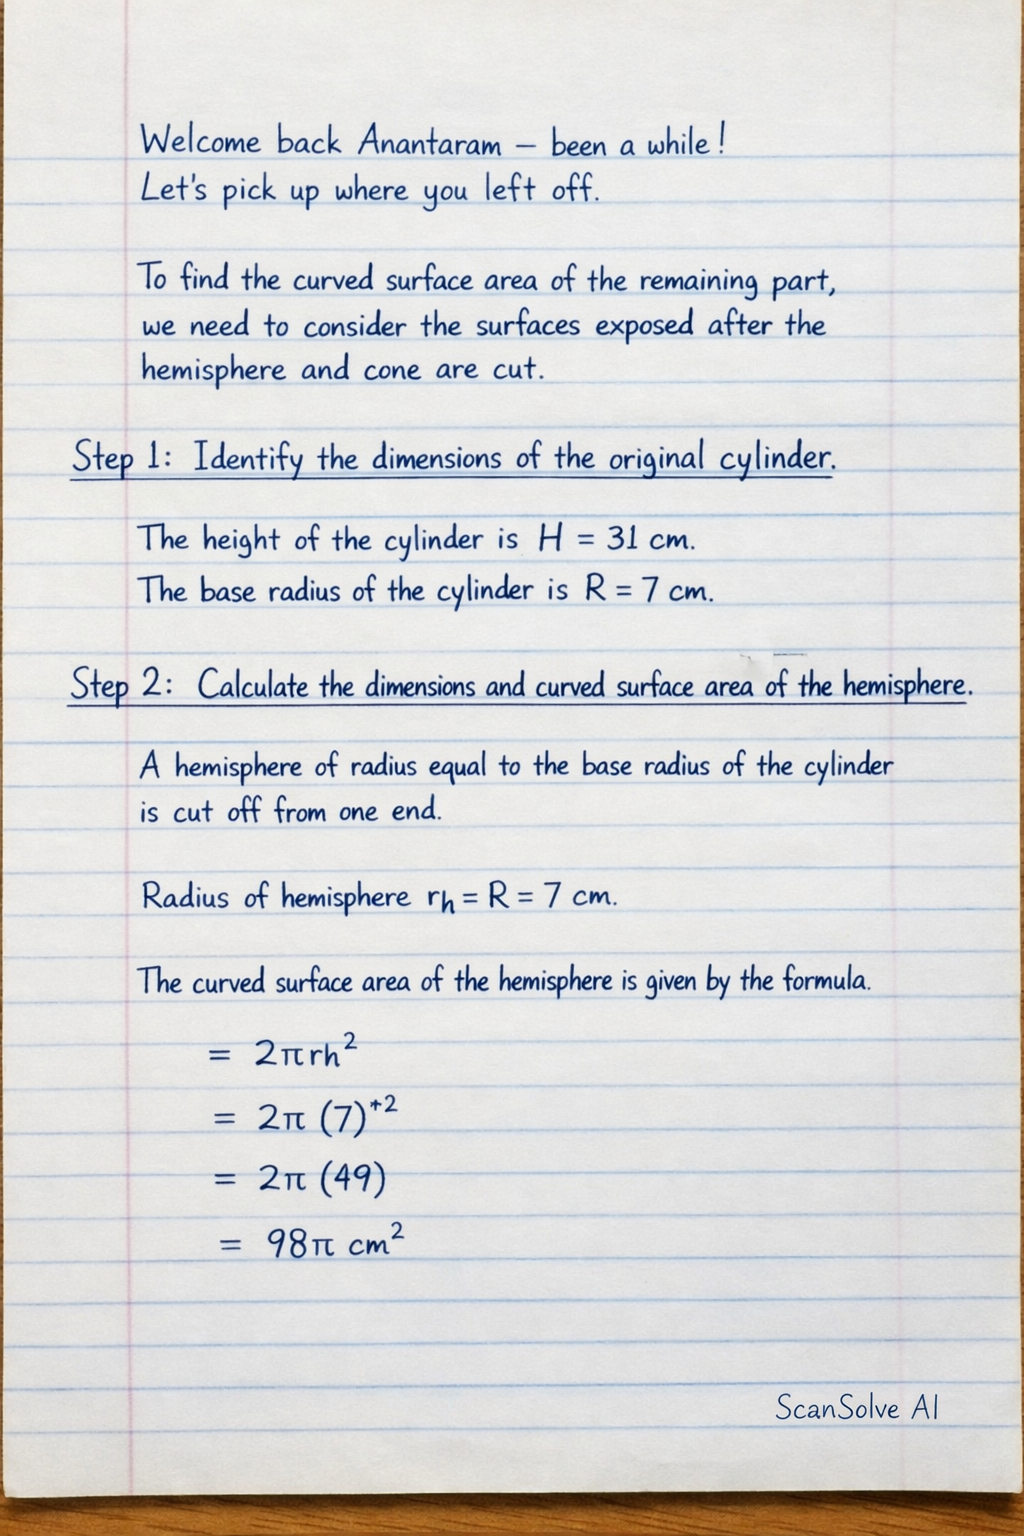 Welcome back Anantaram – been a while!
Let's pick up where you left off.
To find the curved surface area of the remaining part,
we need to consider the surfaces exposed after the
hemisphere and cone are cut.
Step 1: Identify the dimensions of the original cylinder.
The height of the cylinder is H = 31 cm.
The base radius of the cylinder is R = 7 cm.
Step 2: Calculate the dimensions and curved surface area of the hemisphere.
A hemisphere of radius equal to the base radius of the cylinder
is cut off from one end.
Radius of hemisphere rₕ = R = 7 cm.
The curved surface area of the hemisphere is given by the formula.
= 2πrh²
= 2π (7)⁺²
= 2π (49)
= 98π cm²
ScanSolve AI